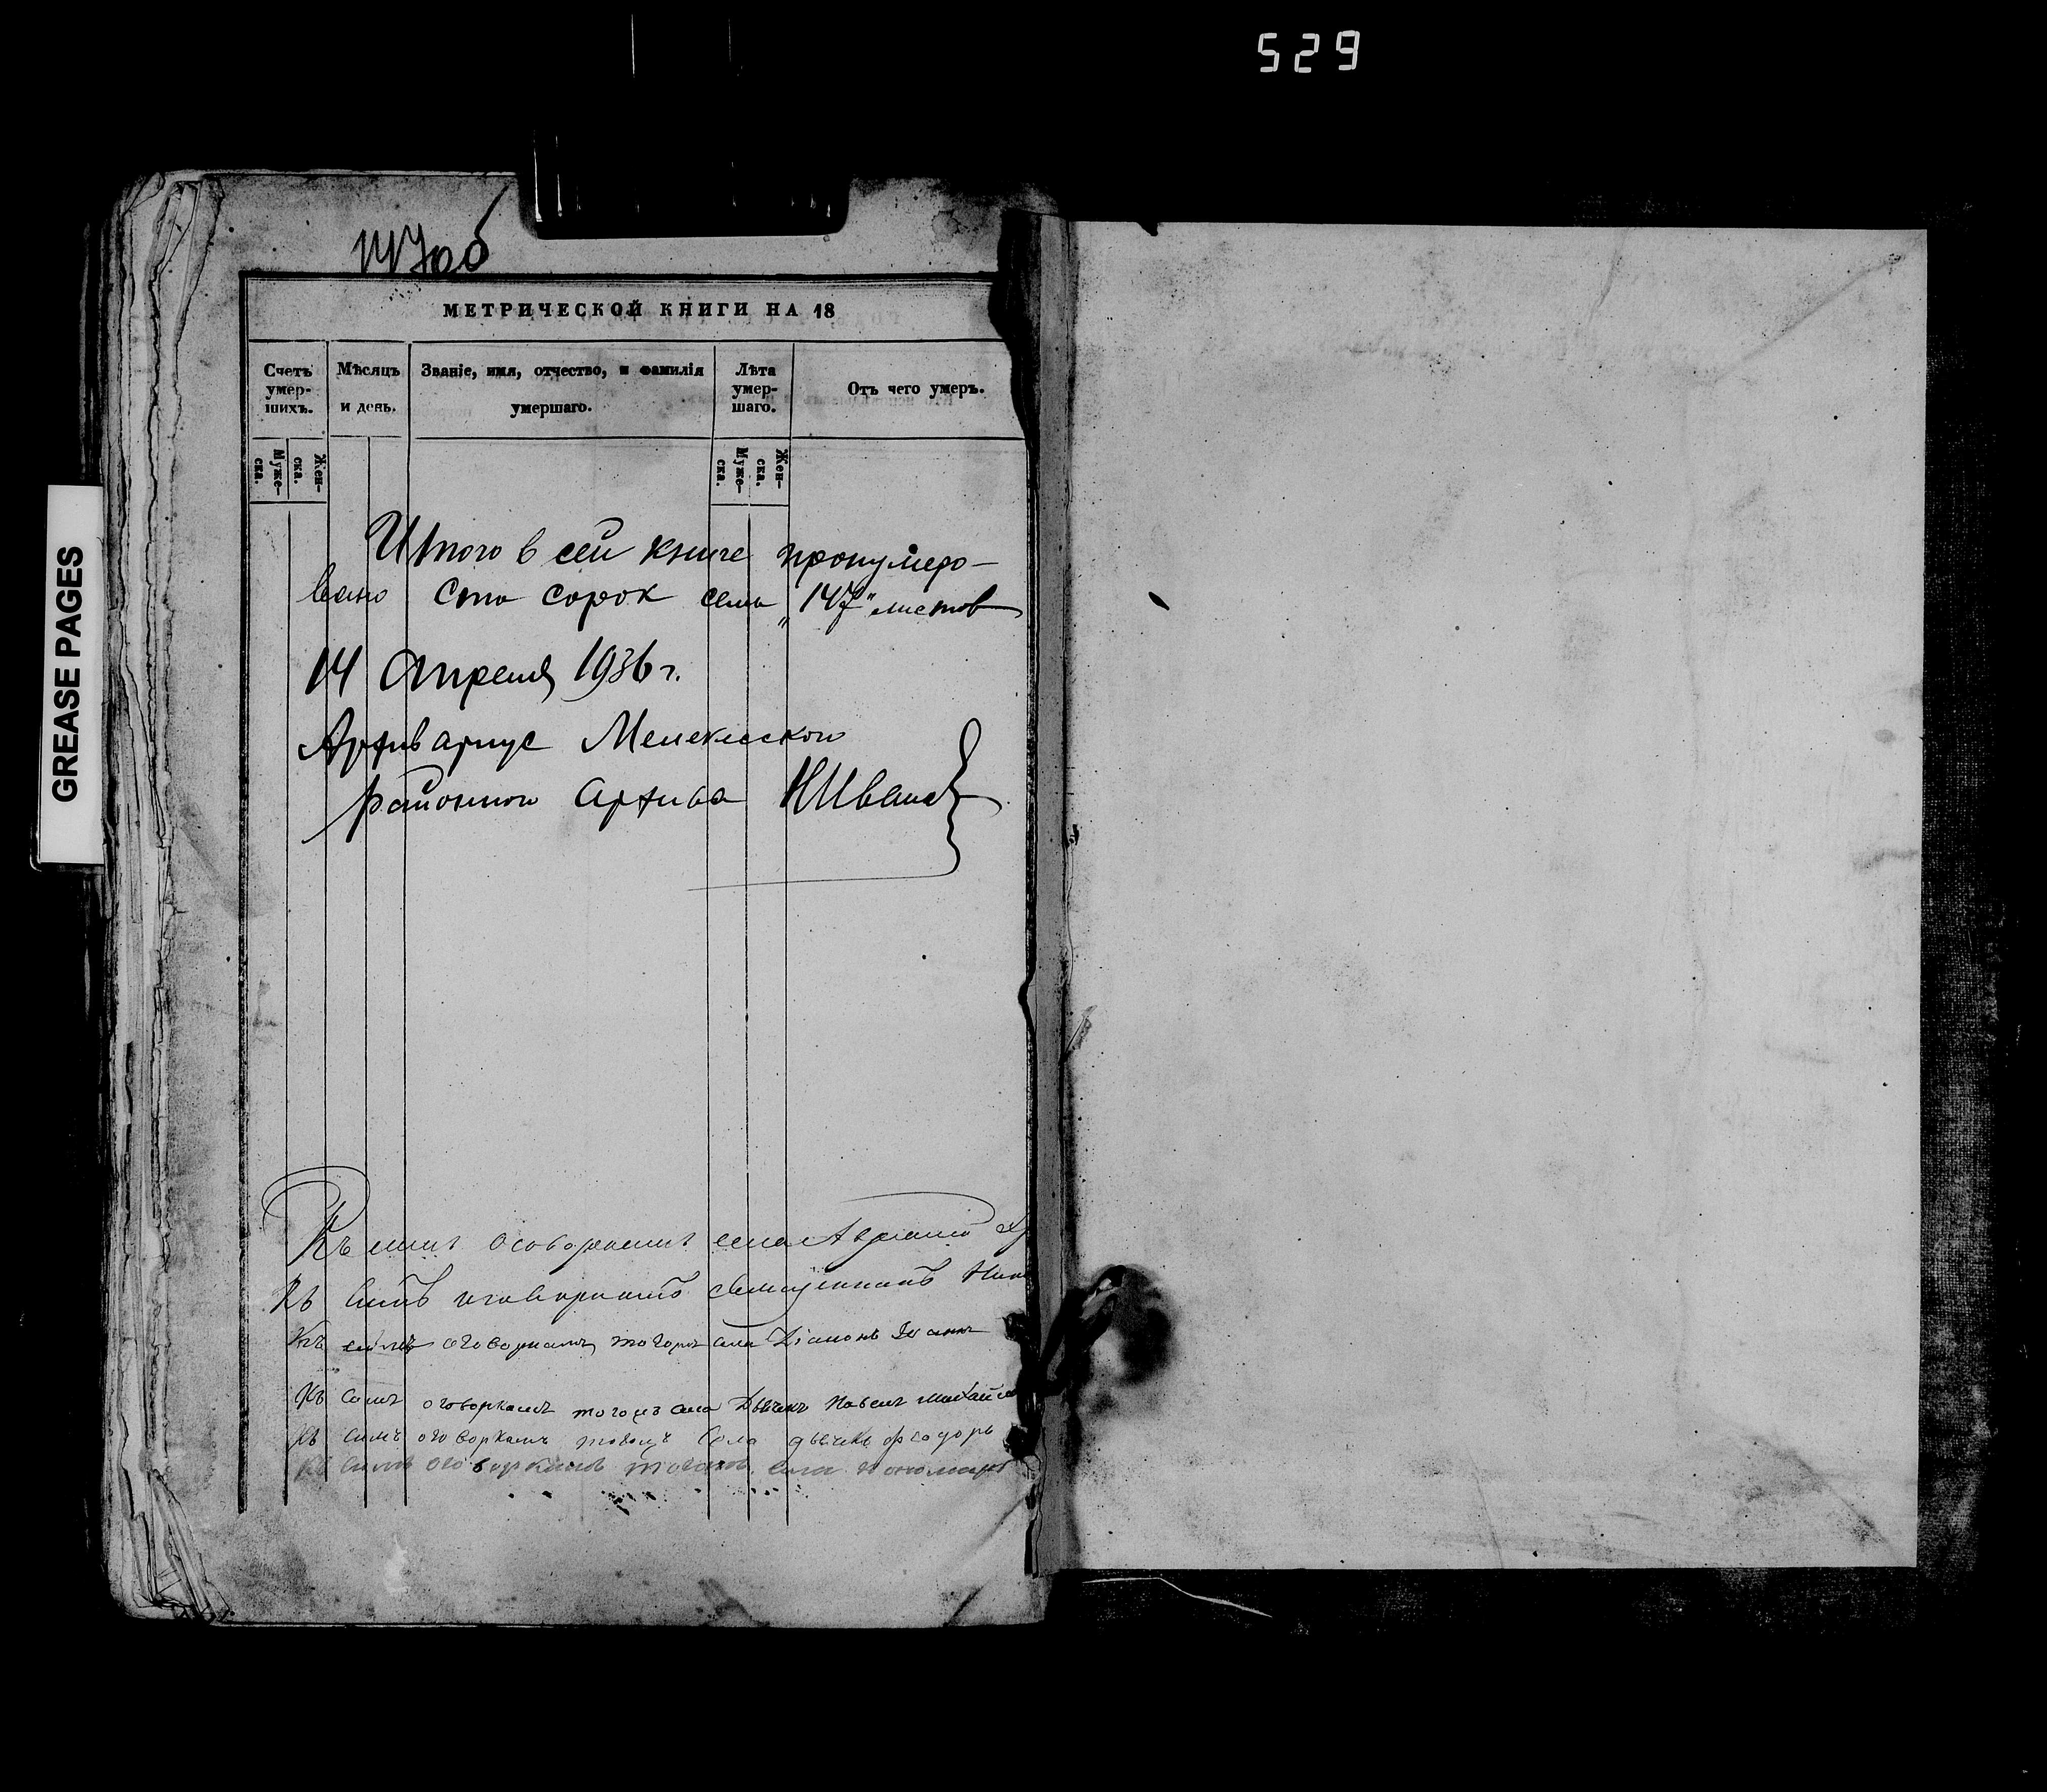 529
147 об
GREASE PAGES
МЕТРИЧЕСКОЙ КНИГИ НА 18
Счетъ умер-шихъ.
Мѣсяцъ и день.
Званіе, имя, отчество, и фамилія умершаго.
Лѣта умер-шаго.
Отъ чего умеръ.
Муже-ска.
Жен-ска.
Муже-ска.
Жен-ска.
Итого в сей книге пронумеро-
вано сто сорок семь „147" листов
14 Апреля 1936 г.
Архивариус Мелекесского
районного Архива НИванов
Къ симъ оговоркамъ села
Къ симъ оговоркамъ священникъ
Къ симъ оговоркамъ тогожъ села Діаконъ Іоаннъ
Къ симъ оговоркамъ тогожъ села Дьячекъ Павелъ Михайло
Къ симъ оговоркамъ тогожъ села дьячекъ Феодоръ
Къ симъ оговоркамъ тогожъ села пономарь